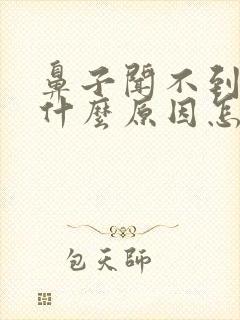 鼻子聞不到
什麼原因怎
包天師